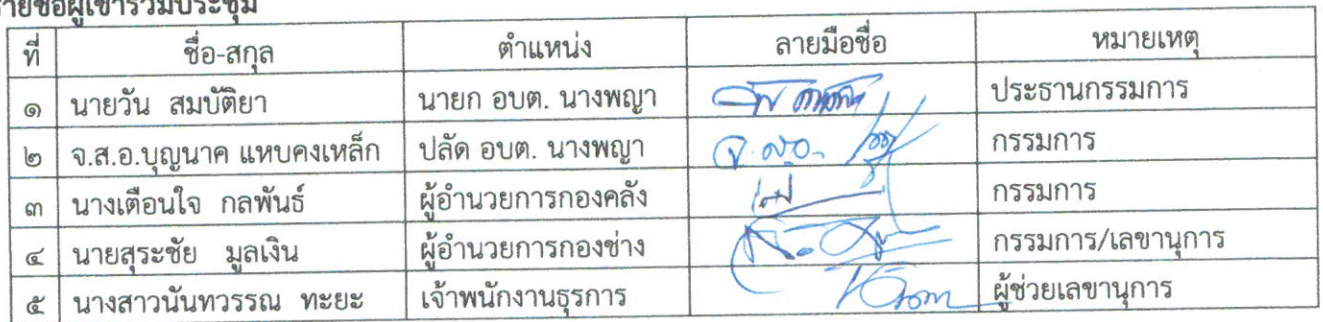 รายชื่อผู้เข้าร่วมประชุม
ที่ ชื่อ-สกุล ตำแหน่ง ลายมือชื่อ หมายเหตุ
๑ นายวัน สมบัติยา นายก อบต. นางพญา ประธานกรรมการ
๒ จ.ส.อ.บุญนาค แหบคงเหล็ก ปลัด อบต. นางพญา จ.ส.อ. กรรมการ
๓ นางเตือนใจ กลพันธ์ ผู้อำนวยการกองคลัง กรรมการ
๔ นายสุระชัย มูลเงิน ผู้อำนวยการกองช่าง กรรมการ/เลขานุการ
๕ นางสาวนันทวรรณ ทะยะ เจ้าพนักงานธุรการ ผู้ช่วยเลขานุการ